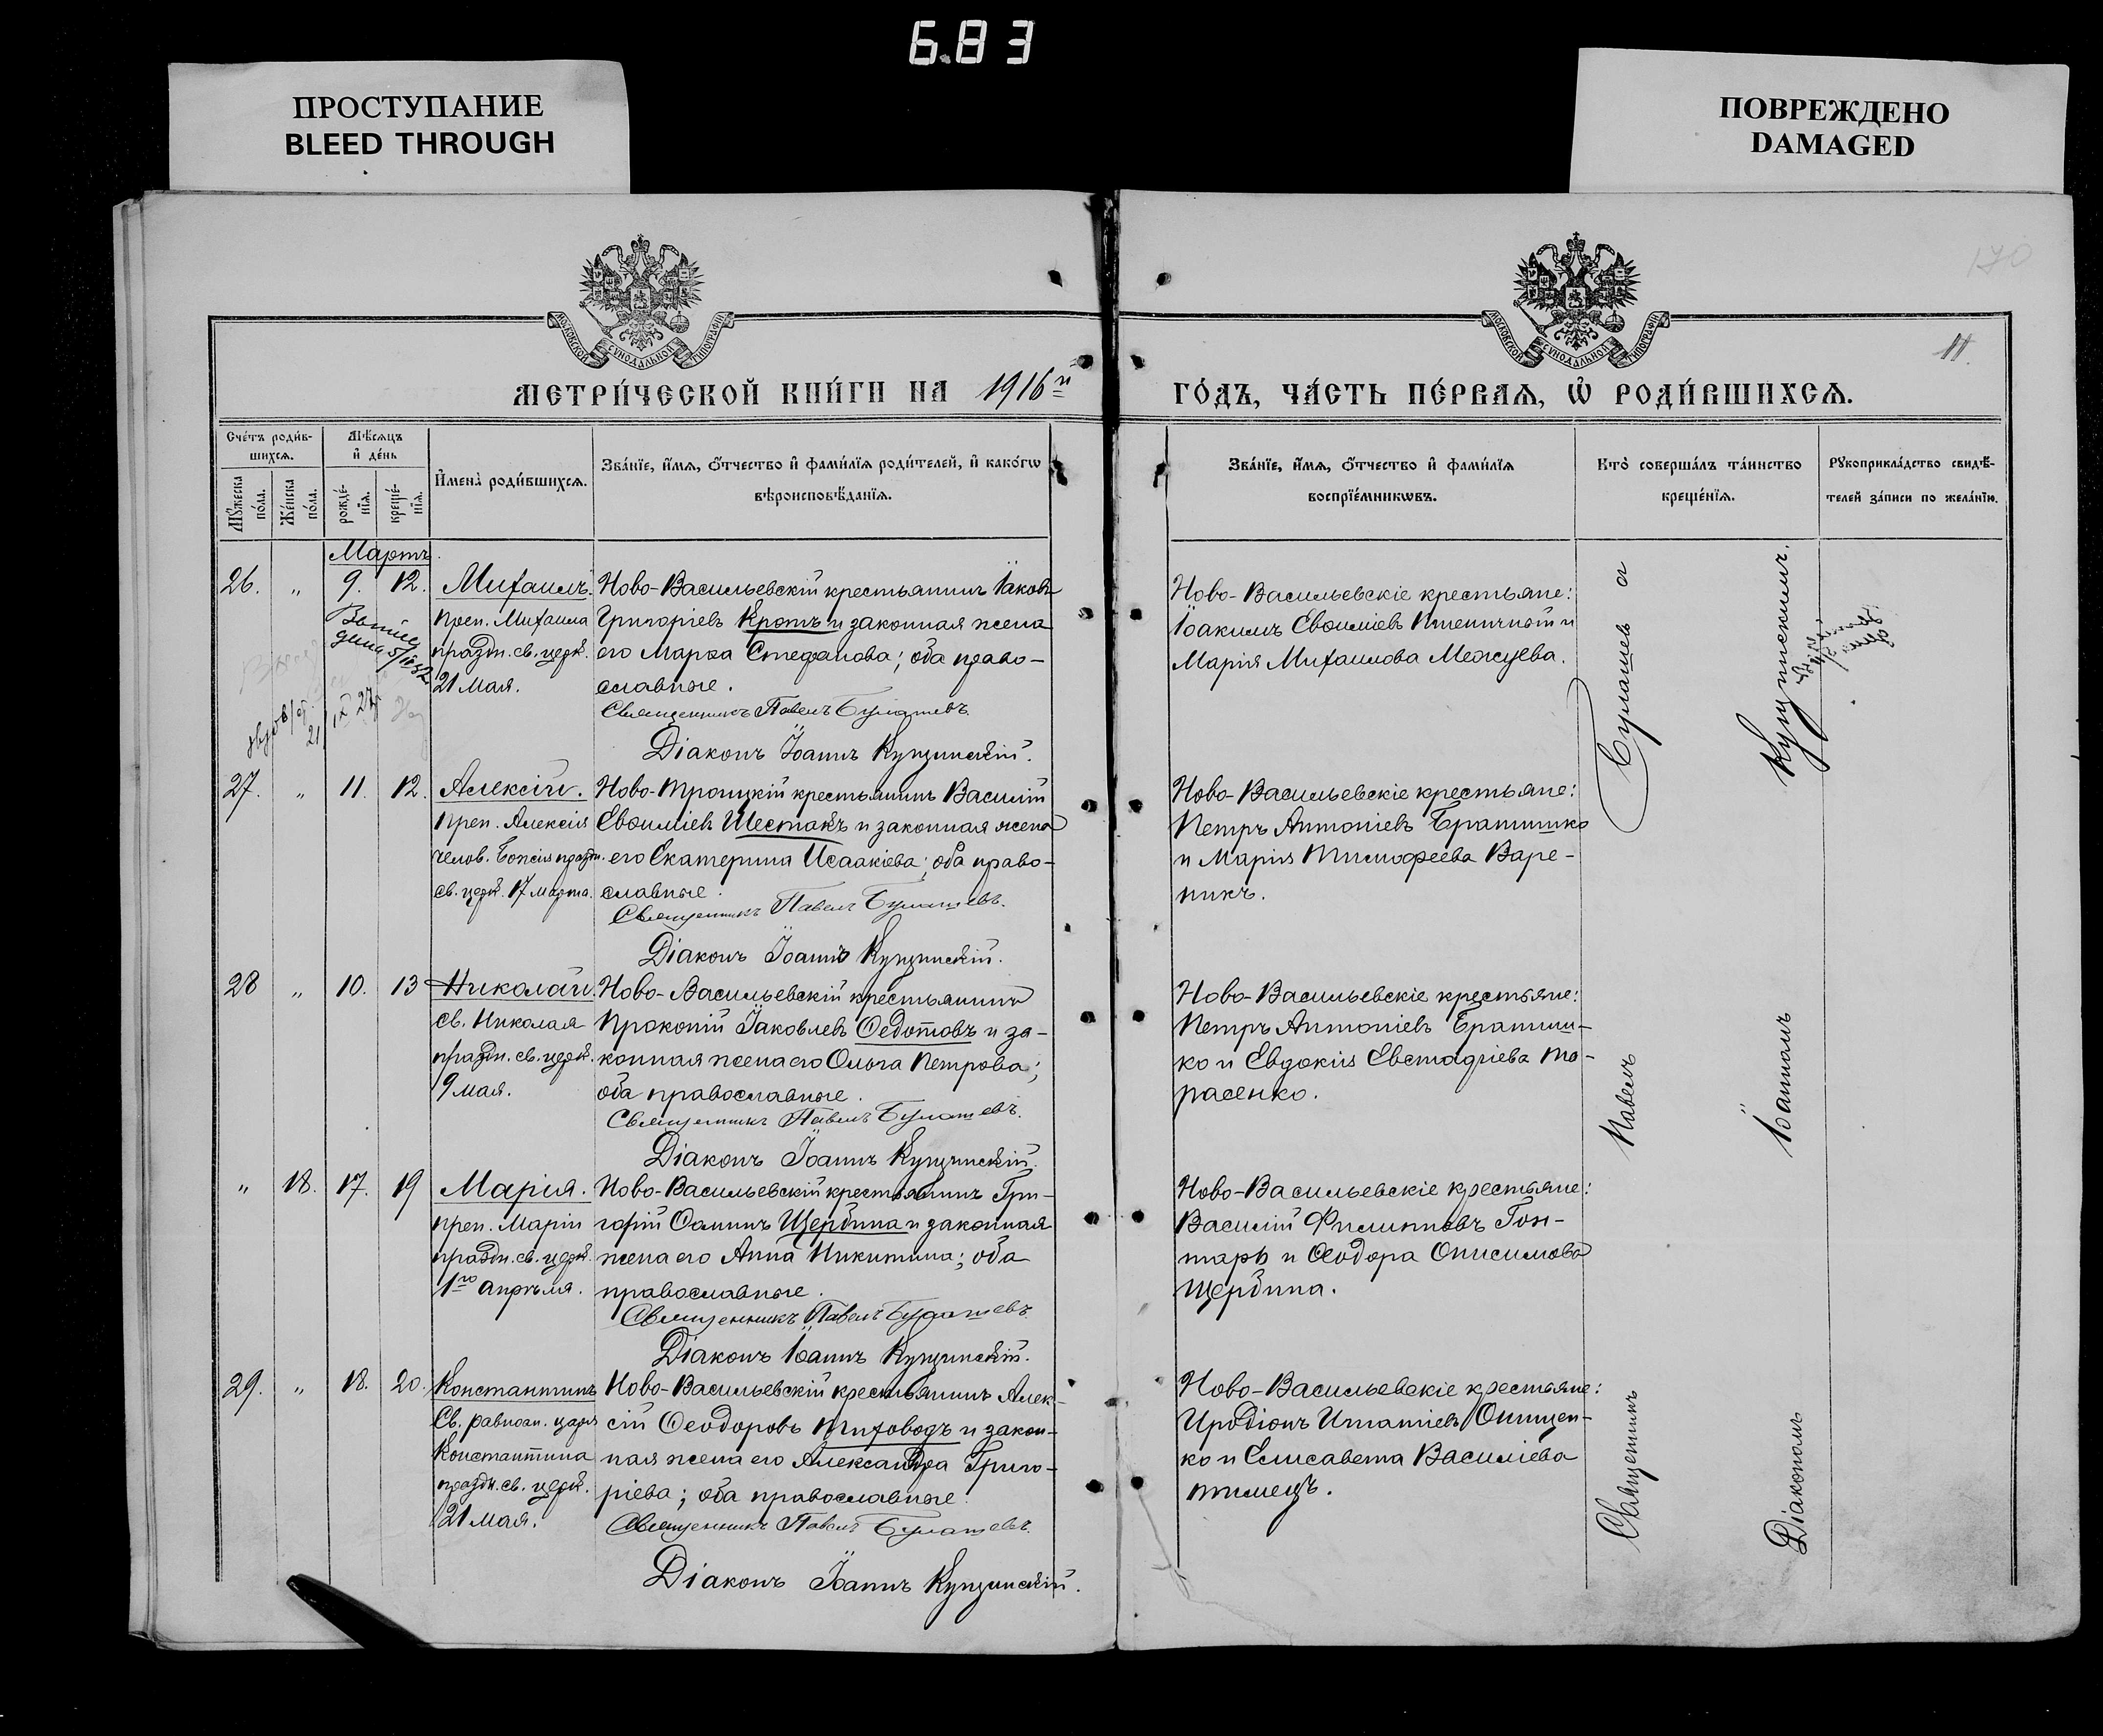 6.83
ПРОСТУПАНИЕ
BLEED THROUGH
ПОВРЕЖДЕНО
DAMAGED
170
МОСКОВСКОЙ СѴНОДАЛЬНОЙ ТИПОГРАФІИ
МОСКОВСКОЙ СѴНОДАЛЬНОЙ ТИПОГРАФІИ
11.
МЕТРИ́ЧЕСКОЙ КНИ́ГИ НА 1916й
ГО́ДЪ, ЧА́СТЬ ПЕ́РВАѦ, Ѽ РОДИ́ВШИХСѦ.
Сче́тъ роди́в-
шихсѧ.
Мꙋ́жеска по́ла.
Же́нска по́ла.
Мѣ́сѧцъ и҆ де́нь
рожде́-
нїѧ.
креще́-
нїѧ.
И҆мена̀ роди́вшихсѧ.
Зва́нїе, и҆́мѧ, ѻ҆́тчество и҆ фами́лїѧ роди́телей, и҆ како́гѡ
вѣроисповѣ́данїѧ.
Зва́нїе, и҆́мѧ, ѻ҆́тчество и҆ фами́лїѧ
воспрїе́мникѡвъ.
Кто̀ соверша́лъ та́инство
креще́нїѧ.
Рꙋкоприкла́дство свидѣ́-
телей за́писи по жела́нїю.
Мартъ.
26. „ 9. 12. Михаилъ.
Преп. Михаила
праздн. св. церк.
21 Мая.
Ново-Васильевскій крестьянинъ Іаковъ
Григоріевъ Кротъ и законная жена
его Марѳа Стефанова; оба право-
славные.
Священникъ Павелъ Булашевъ.
Діаконъ Іоаннъ Купчинскій.
Ново-Васильевскіе крестьяне:
Іоакимъ Евѳиміевъ Пшеничный и
Марія Михаилова Межуева.
27. „ 11. 12. Алексій.
Преп. Алексія
челов. Божія праздн.
св. церк. 17 марта.
Ново-Троицкій крестьянинъ Василій
Евѳиміевъ Шестакъ и законная жена
его Екатерина Исаакіева; оба право-
славные.
Священникъ Павелъ Булашевъ.
Діаконъ Іоаннъ Купчинскій.
Ново-Васильевскіе крестьяне:
Петръ Антоніевъ Братишко
и Марія Тимофеева Варе-
никъ.
28 „ 10. 13 Николай.
Св. Николая
праздн. св. церк.
9 мая.
Ново-Васильевскій крестьянинъ
Прокопій Іаковлевъ Ѳедотовъ и за-
конная жена его Ольга Петрова;
оба православные.
Священникъ Павелъ Булашевъ.
Діаконъ Іоаннъ Купчинскій.
Ново-Васильевскіе крестьяне:
Петръ Антоніевъ Братиш-
ко и Евдокія Евстафіева Та-
расенко.
„ 18. 17. 19 Марія.
Преп. Маріи
праздн. св. церк.
1го апрѣля.
Ново-Васильевскій крестьянинъ Гри-
горій Ѳоминъ Щербина и законная
жена его Анна Никитина; оба
православные.
Священникъ Павелъ Булашевъ
Діаконъ Іоаннъ Купчинскій.
Ново-Васильевскіе крестьяне:
Василій Филипповъ Гон-
тарь и Ѳеодора Онисимова
Щербина.
29. „ 18. 20. Константинъ
Св. равноап. царя
Константина
праздн. св. церк.
21 мая.
Ново-Васильевскій крестьянинъ Алек-
сій Ѳеодоровъ Тиховодъ и закон-
ная жена его Александра Григо-
ріева; оба православные.
Священникъ Павелъ Булашевъ.
Діаконъ Іоаннъ Купчинскій.
Ново-Васильевскіе крестьяне:
Иродіонъ Игнатіевъ Онищен-
ко и Елисавета Василіева
Священникъ Павелъ Булашев
Діакономъ Іоанномъ Купчинскимъ.